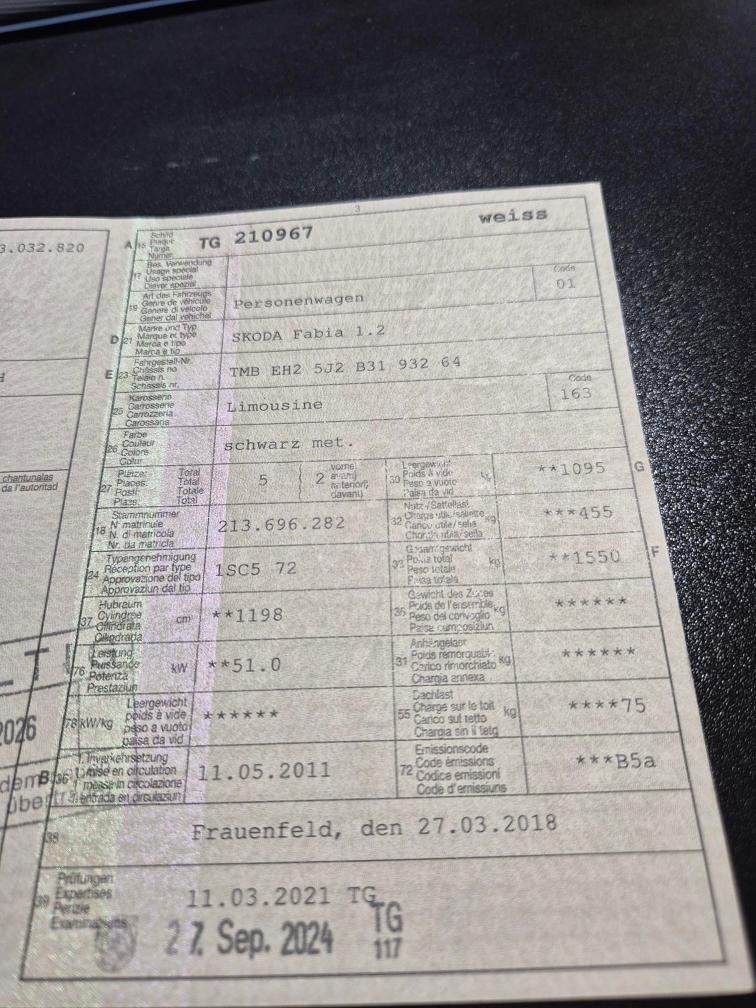 3.032.820
chantunalas
da l'autoritad
2026
3
A 15 Schild Plaque Targa Numer TG 210967 weiss
17 Bes. Verwendung
Usage spécial
Uso speciale
Diever spezial
19 Art des Fahrzeugs
Genre de véhicule
Genere di veicolo
Gener dal vehichel
Personenwagen
Code
01
D 21 Marke und Typ
Marque et type
Marca e tipo
Marca e tip
SKODA Fabia 1.2
E 23 Fahrgestell-Nr.
Châssis no
Telaio n.
Schassis nr.
TMB EH2 5J2 B31 932 64
25 Karosserie
Carrosserie
Carrozzeria
Carossaria
Limousine
Code
163
26 Farbe
Couleur
Colore
Colur
schwarz met.
27 Plätze: Total
Places: Total
Posti: Totale
Plazs: Total
5
2
vorne
avant
anteriori
davant
30 Leergewicht
Poids à vide
Peso a vuoto
Paisa da vid
kg
**1095
G
18 Stammnummer
N° matricule
N. di matricola
Nr. da matricla
213.696.282
32 Nutz-/Sattellast
Charge utile/sellette
Carico utile/sella
Chargia utila/sella
kg
***455
24 Typengenehmigung
Réception par type
Approvazione del tipo
Approvaziun dal tip
1SC5 72
33 Gesamtgewicht
Poids total
Peso totale
Paisa totala
kg
**1550
F
37 Hubraum
Cylindrée
Cilindrata
Cilindrada
cm³
**1198
35 Gewicht des Zuges
Poids de l'ensemble
Peso del convoglio
Paisa cumposiziun
kg
******
76 Leistung
Puissance
Potenza
Prestaziun
kW
**51.0
31 Anhängelast
Poids remorquable
Carico rimorchiato
Chargia annexa
kg
******
78 kW/kg
Leergewicht
poids à vide
peso a vuoto
paisa da vid
******
55 Dachlast
Charge sur le toit
Carico sul tetto
Chargia sin il tetg
kg
****75
B 36 1. Inverkehrsetzung
1ère mise en circulation
1a messa in circolazione
1. entrada en circulaziun
11.05.2011
72 Emissionscode
Code émissions
Codice emissioni
Code d'emissiuns
***B5a
38
Frauenfeld, den 27.03.2018
39 Prüfungen
Expertises
Perizie
Examinaziuns
11.03.2021 TG
27. Sep. 2024
TG
117